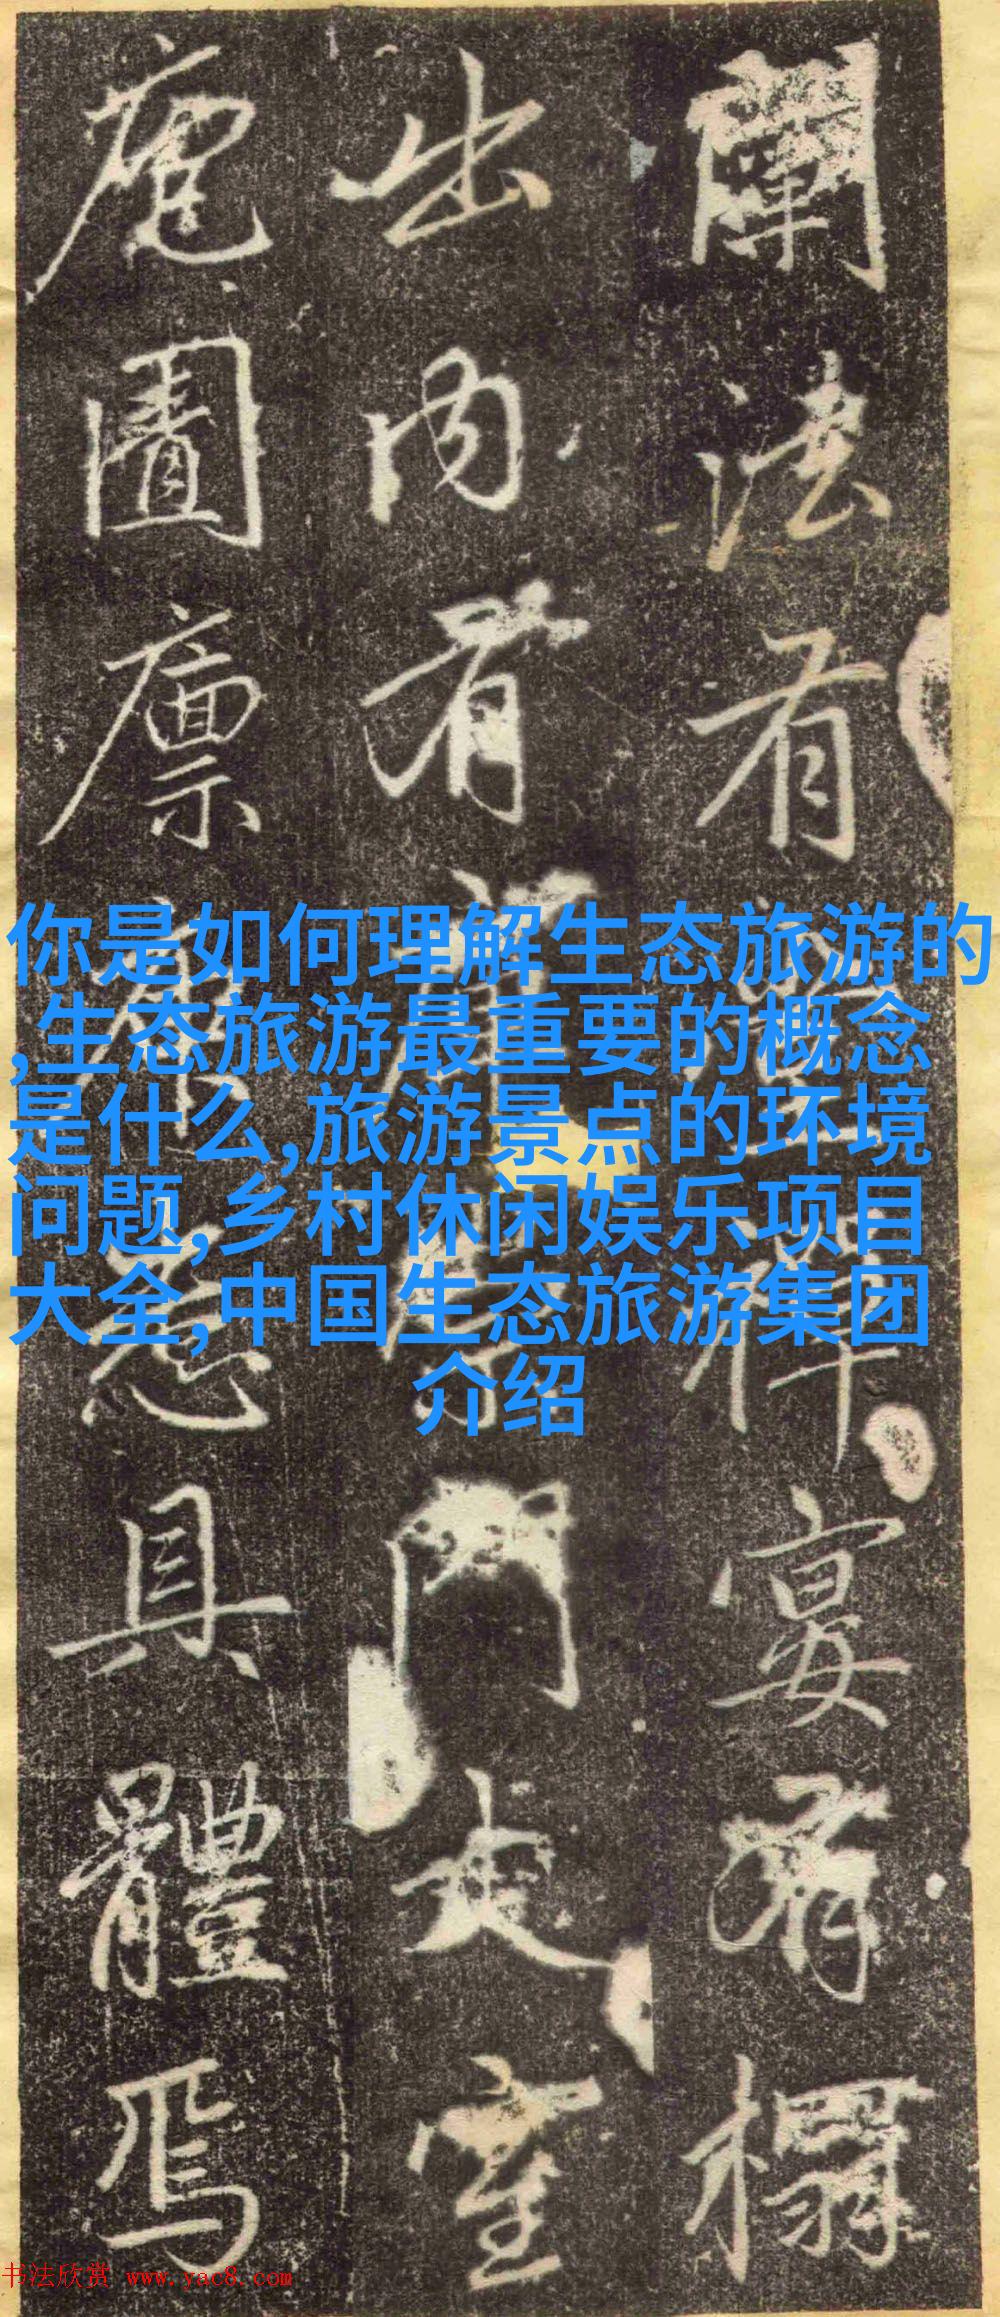 闡法有禪宴有榻
出内有門走室
庖圊廩悉具體焉
你是如何理解生态旅游的
,生态旅游最重要的概念
是什么,旅游景点的环境
问题,乡村休闲娱乐项目
大全,中国生态旅游集团
介绍
书法欣赏 www.yac8.com